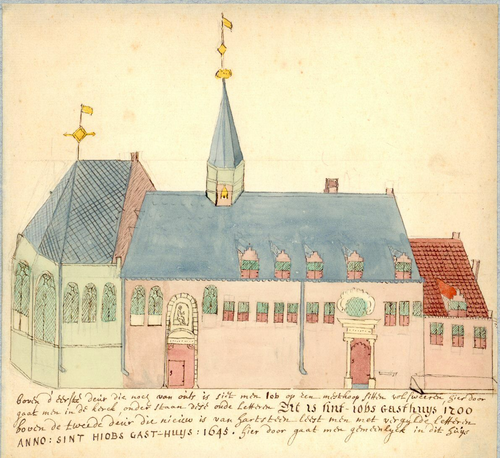 boven d'eerste deür die noch van outs is siet men Iob op den misthoop sitten vol sweeren, hier door
gaat men in de kerck onder staan dese oude letteren Dit is sint-iobs Gasthuys 1700
boven de tweede deür die nieuw is van hartstein leest men met vergulde letteren
ANNO: SINT HIOBS GAST-HUYS: 1645. hier door gaat men gemeenlyck in dit huys